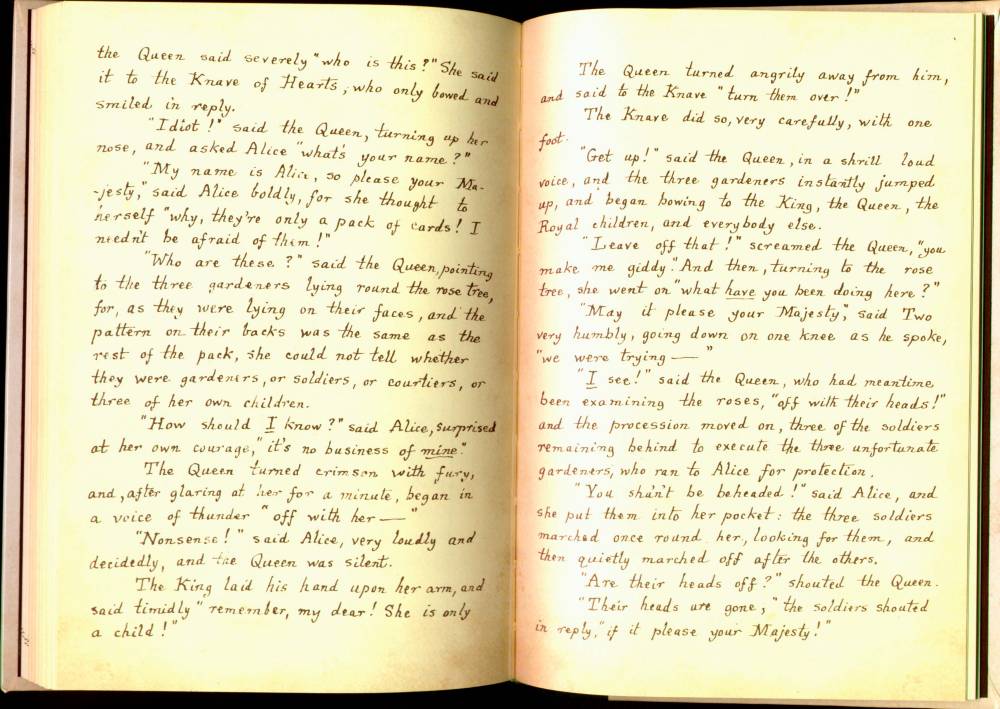 the Queen said severely "who is this?" She said
it to the Knave of Hearts, who only bowed and
smiled in reply.
"Idiot!" said the Queen, turning up her
nose, and asked Alice "what's your name?"
"My name is Alice, so please your Ma-
-jesty," said Alice boldly, for she thought to
herself "why, they're only a pack of cards! I
needn't be afraid of them!"
"Who are these?" said the Queen, pointing
to the three gardeners lying round the rose tree,
for, as they were lying on their faces, and the
pattern on their backs was the same as the
rest of the pack, she could not tell whether
they were gardeners, or soldiers, or courtiers, or
three of her own children.
"How should I know?" said Alice, surprised
at her own courage, "it's no business of mine."
The Queen turned crimson with fury,
and, after glaring at her for a minute, began in
a voice of thunder "off with her—"
"Nonsense!" said Alice, very loudly and
decidedly, and the Queen was silent.
The King laid his hand upon her arm, and
said timidly "remember, my dear! She is only
a child!"
The Queen turned angrily away from him,
and said to the Knave "turn them over!"
The Knave did so, very carefully, with one
foot.
"Get up!" said the Queen, in a shrill loud
voice, and the three gardeners instantly jumped
up, and began bowing to the King, the Queen, the
Royal children, and everybody else.
"Leave off that!" screamed the Queen, "you
make me giddy." And then, turning to the rose
tree, she went on "what have you been doing here?"
"May it please your Majesty," said Two
very humbly, going down on one knee as he spoke,
"we were trying—"
"I see!" said the Queen, who had meantime
been examining the roses, "off with their heads!"
and the procession moved on, three of the soldiers
remaining behind to execute the three unfortunate
gardeners, who ran to Alice for protection.
"You shan't be beheaded!" said Alice, and
she put them into her pocket: the three soldiers
marched once round her, looking for them, and
then quietly marched off after the others.
"Are their heads off?" shouted the Queen.
"Their heads are gone," the soldiers shouted
in reply, "if it please your Majesty!"